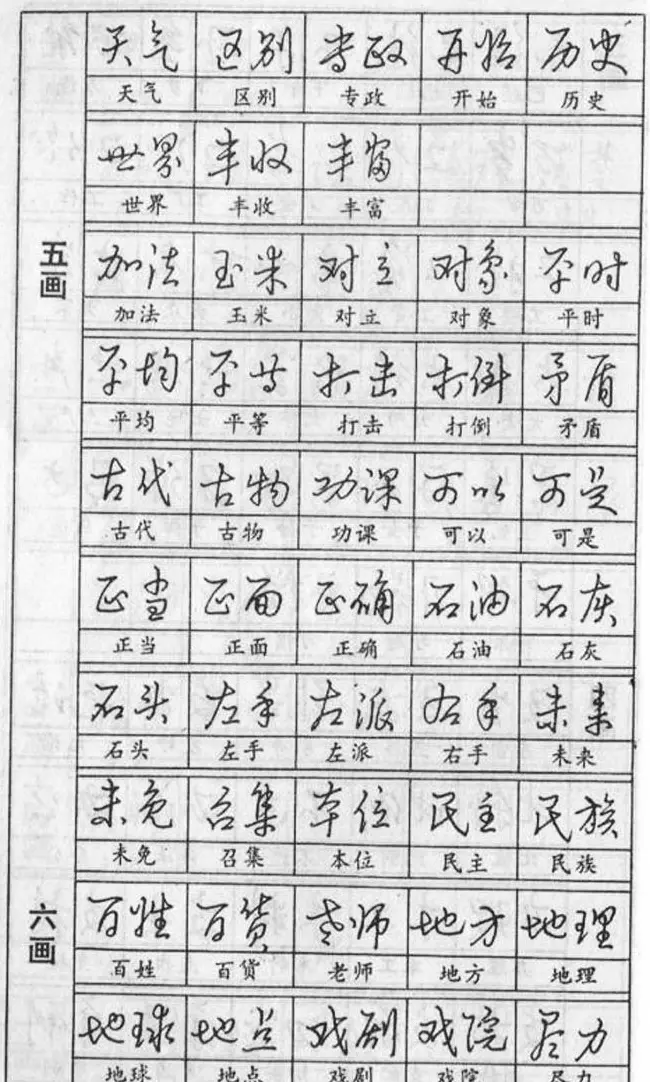 天气 区别 专政 开始 历史
天气 区别 专政 开始 历史
世界 丰收 丰富
世界 丰收 丰富
五画
加法 玉米 对立 对象 平时
加法 玉米 对立 对象 平时
平均 平等 打击 打倒 矛盾
平均 平等 打击 打倒 矛盾
古代 古物 功课 可以 可是
古代 古物 功课 可以 可是
正当 正面 正确 石油 石灰
正当 正面 正确 石油 石灰
石头 左手 左派 右手 未来
石头 左手 左派 右手 未来
未免 召集 本位 民主 民族
未免 召集 本位 民主 民族
六画
百姓 百货 老师 地方 地理
百姓 百货 老师 地方 地理
地球 地点 戏剧 戏院 尽力
地球 地点 戏剧 戏院 尽力